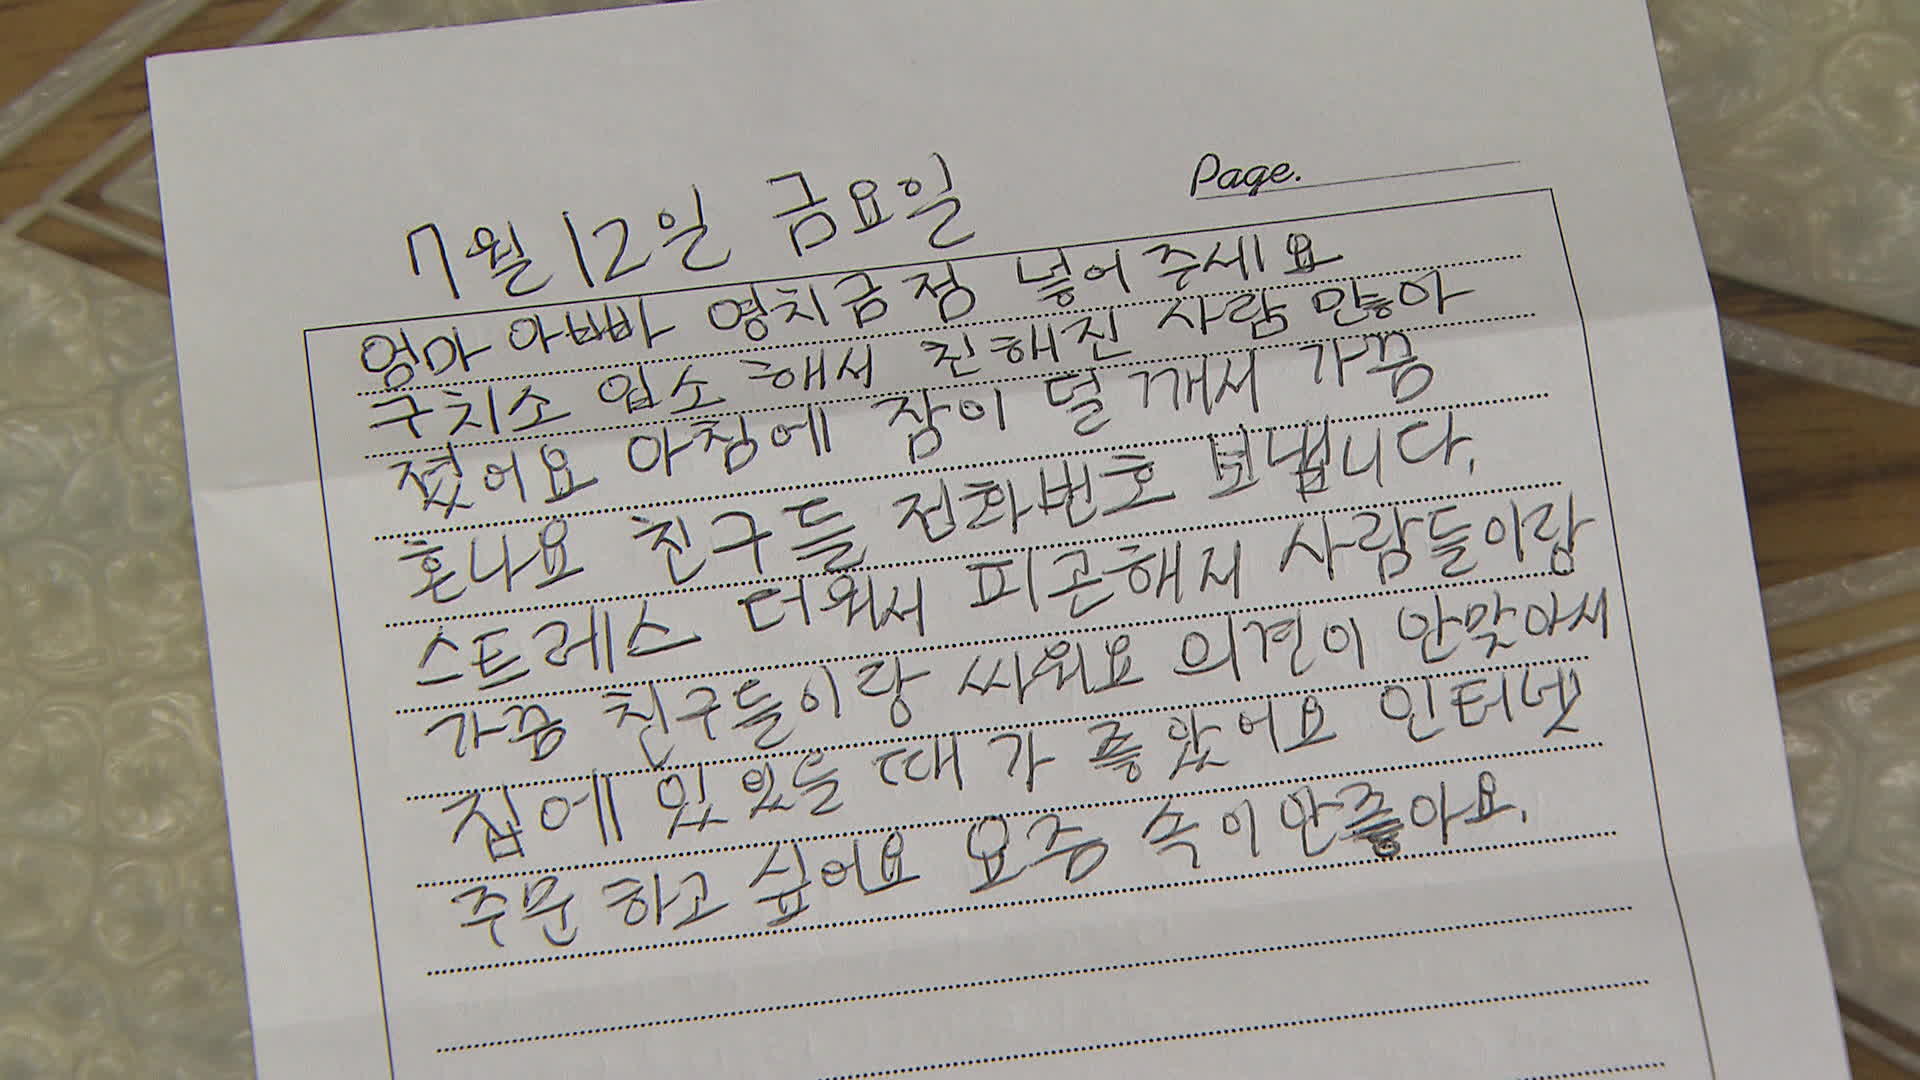 Page.
7월 12일 금요일
엄마 아빠 영치금 점 넣어 주세요
구치소 입소 해서 친해진 사람 많아
졌어요 아침에 잠이 덜 깨서 가끔
혼나요 친구들 전화번호 보냅니다.
스트레스 더워서 피곤해서 사람들이랑
가끔 친구들이랑 싸워요 의견이 안맞아서
집에 있었을 때가 좋았어요 인터넷
주문하고 싶어요 요즘 속이안좋아요.